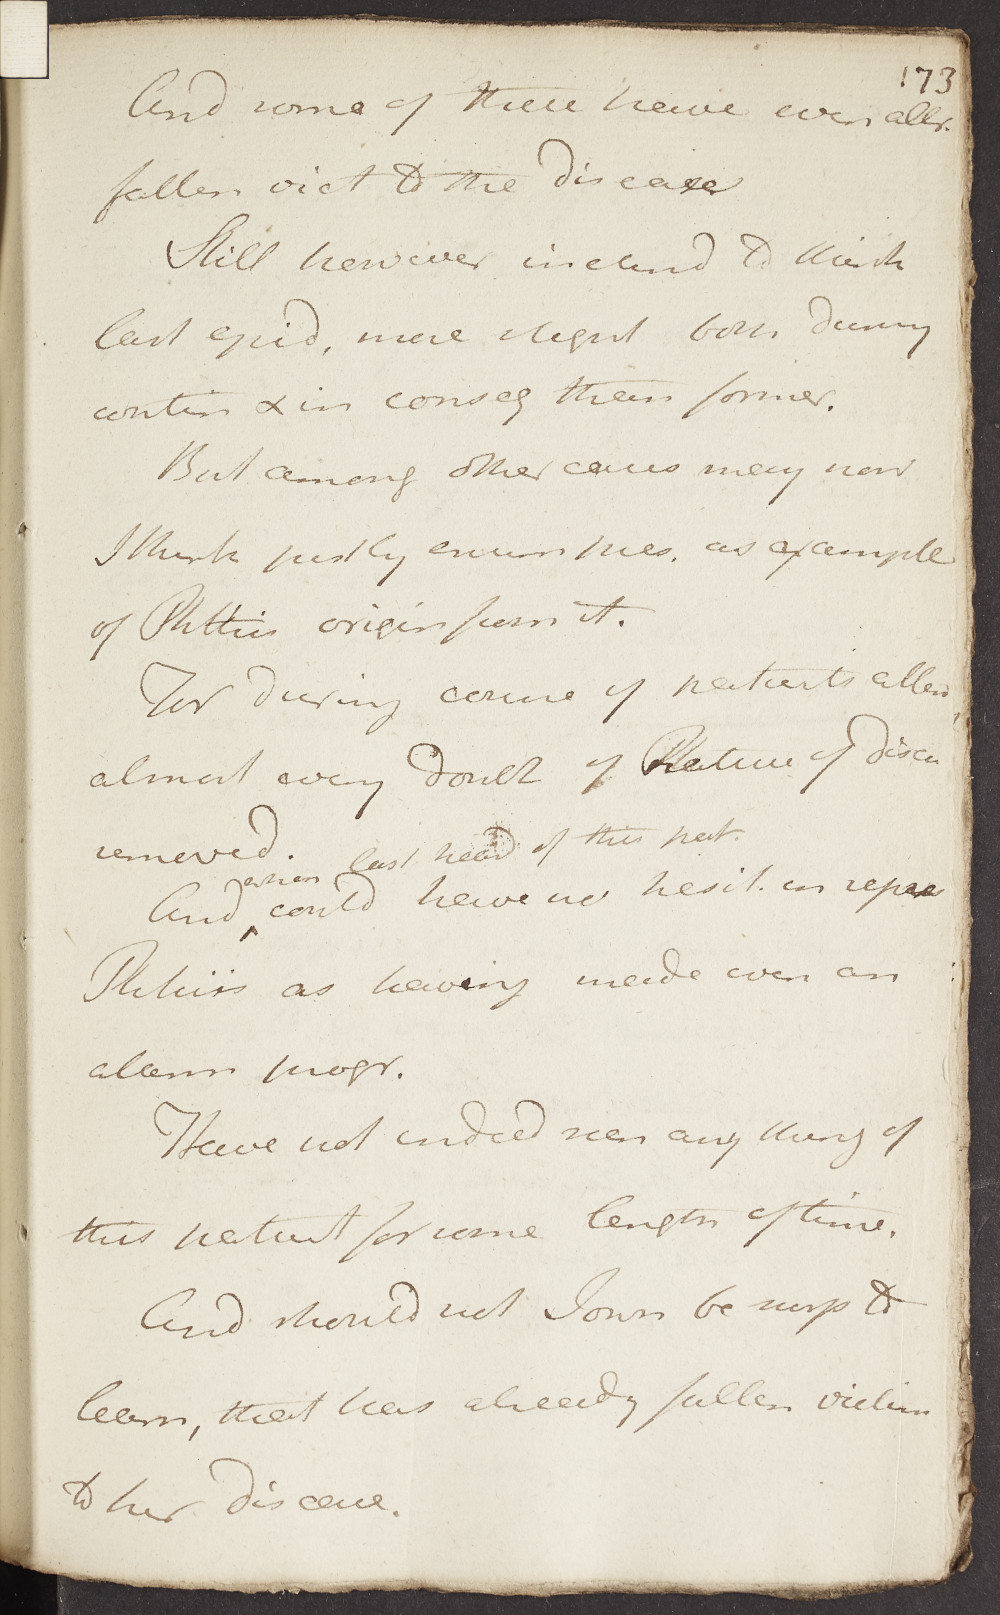 173
And some of these have even allr.
fallen vict to the disease
Still however inclind to think
last epid, more slight both during
contin & in conseq than former.
But among other cases may now
I think justly enum pres. as example
of Phthis origin from it.
For during course of patients atten,
almost every doubt of Nature of disea
removed.
when last head of this pat.
And could have no hesit. in repres
Phthisis as having made even an
alarm progr.
Have not indeed seen any thing of
this patient for some length of time.
And should not I own be surp to
learn, that has already fallen victim
to her disease.